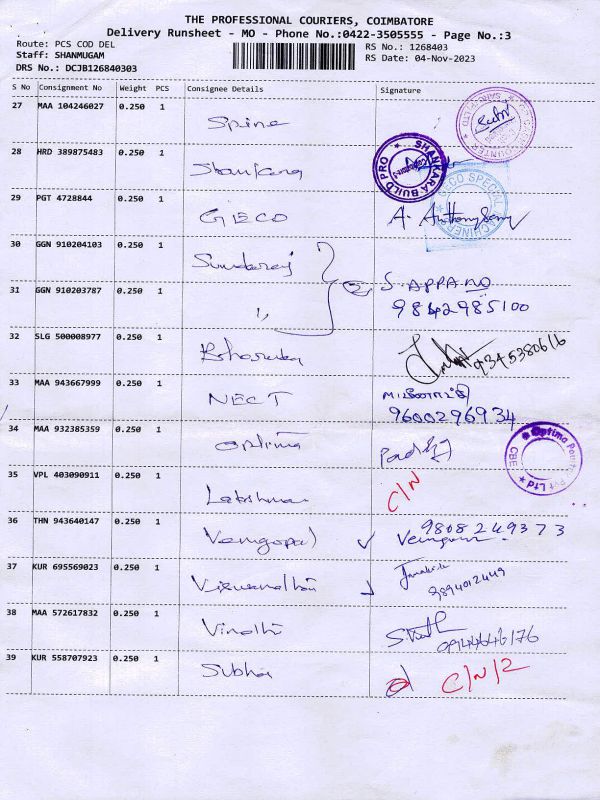 THE PROFESSIONAL COURIERS, COIMBATORE
Delivery Runsheet - MO - Phone No.:0422-3505555 - Page No.:3
Route: PCS COD DEL RS No.: 1268403
Staff: SHANMUGAM RS Date: 04-Nov-2023
DRS No.: DCJB126840303
S No Consignment No Weight PCS Consignee Details Signature
27 MAA 104246027 0.250 1 Spine
28 HRD 389875483 0.250 1 SHANKARA BUILD PRO
29 PGT 4728844 0.250 1 GIECO A. Anthonysamy
GECO SPECIAL
30 GGN 910204103 0.250 1 Sundaraj
S. APPANO
31 GGN 910203787 0.250 1 " 9842985100
32 SLG 500008977 0.250 1 9345380616
33 MAA 943667999 0.250 1 NECT
9600296934
34 MAA 932385359 0.250 1 optima
Optima Pvt Ltd CBE
35 VPL 403090911 0.250 1 Lakshman C/N
36 THN 943640147 0.250 1 Venugopal ✓ 9808249373
37 KUR 695569023 0.250 1 Viswanathan Janaki
9894012449
38 MAA 572617832 0.250 1 Vinoth
09144646176
39 KUR 558707923 0.250 1 Subha C/N/2